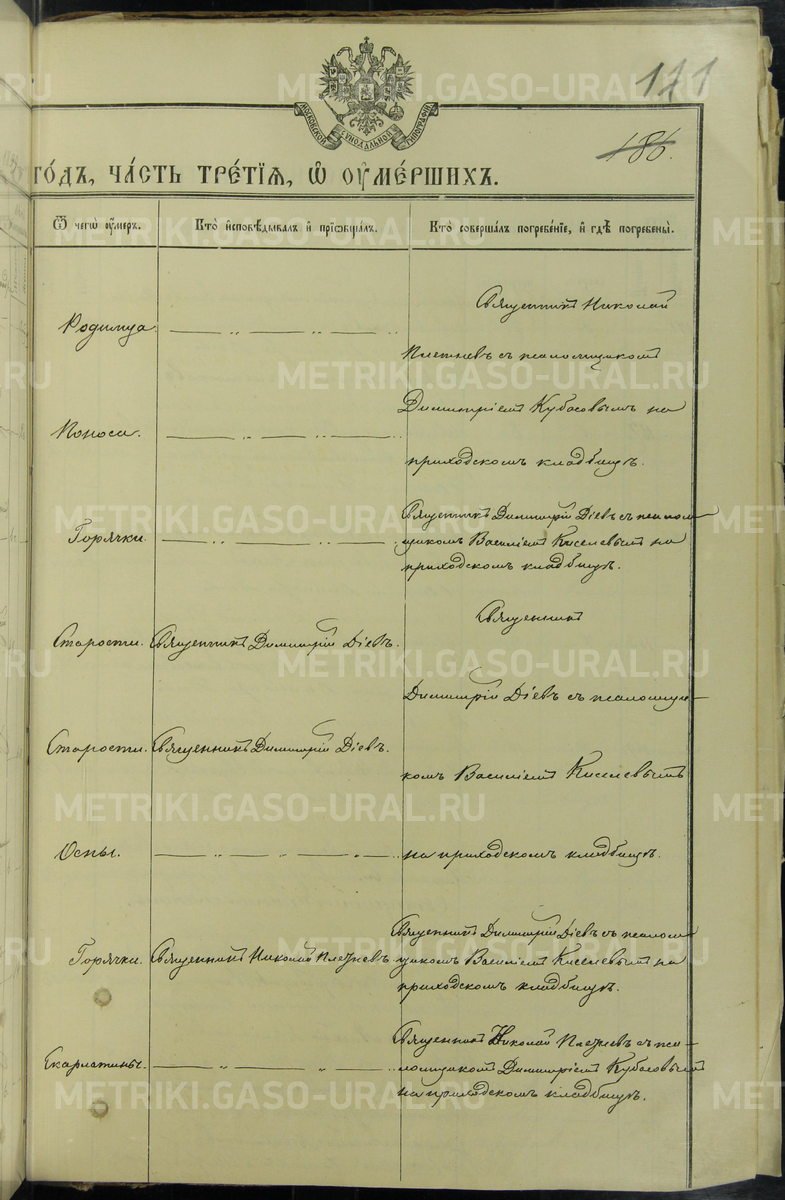 METRIKI.GASO-URAL.RU
МОСКОВСКОЙ СѴНОДАЛЬНОЙ ТИПОГРАФІИ
186.
ГОДЪ, ЧА́СТЬ ТРЕ́ТІЯ, Ѡ҆ ОУ҆МЕ́РШИХЪ.
Ѿ чегѡ̀ оу҆́меръ.
Кто̀ и҆сповѣ́дывалъ и҆ прїѡбща́лъ.
Кто̀ соверша́лъ погребе́нїе, и҆ гдѣ̀ погребены̀.
Родимца
Священникъ Николай
Плетневъ съ псаломщикомъ
Поноса.
Димитріемъ Кубасовымъ на
приходскомъ кладбищѣ.
Горячки.
Священникъ Димитрій Діевъ съ псалом
щикомъ Василіемъ Киселевымъ на
приходскомъ кладбищѣ.
Старости.
Священникъ Димитрій Діевъ.
Священникъ
Димитрій Діевъ съ псаломщи-
Старости.
Священникъ Димитрій Діевъ.
комъ Василіемъ Киселевымъ
Оспы.
на приходскомъ кладбищѣ.
Горячки.
Священникъ Николай Плетневъ
Священникъ Димитрій Діевъ съ псалом
щикомъ Василіемъ Киселевымъ на
приходскомъ кладбищѣ.
Скарлатины.
Священникъ Николай Плетневъ съ пса-
ломщикомъ Димитріемъ Кубасовымъ
на приходскомъ кладбищѣ.